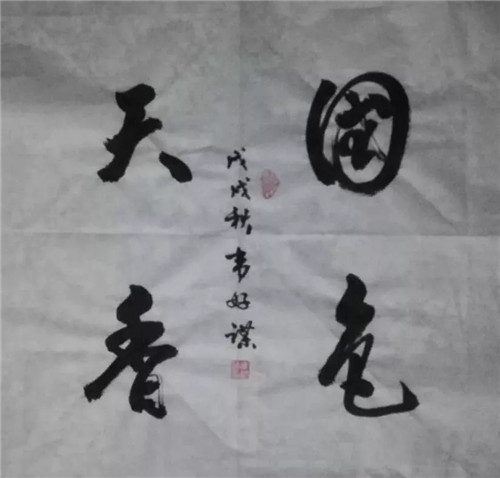 國色
天香
戊戌秋韦好谋